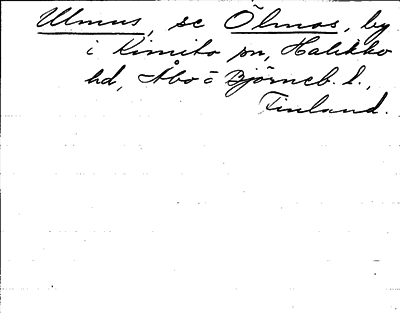 Ulmus, se Õlmos, by
i Kimito pn, Halikko
hd, Åbo o Björneb. l.,
Finland.